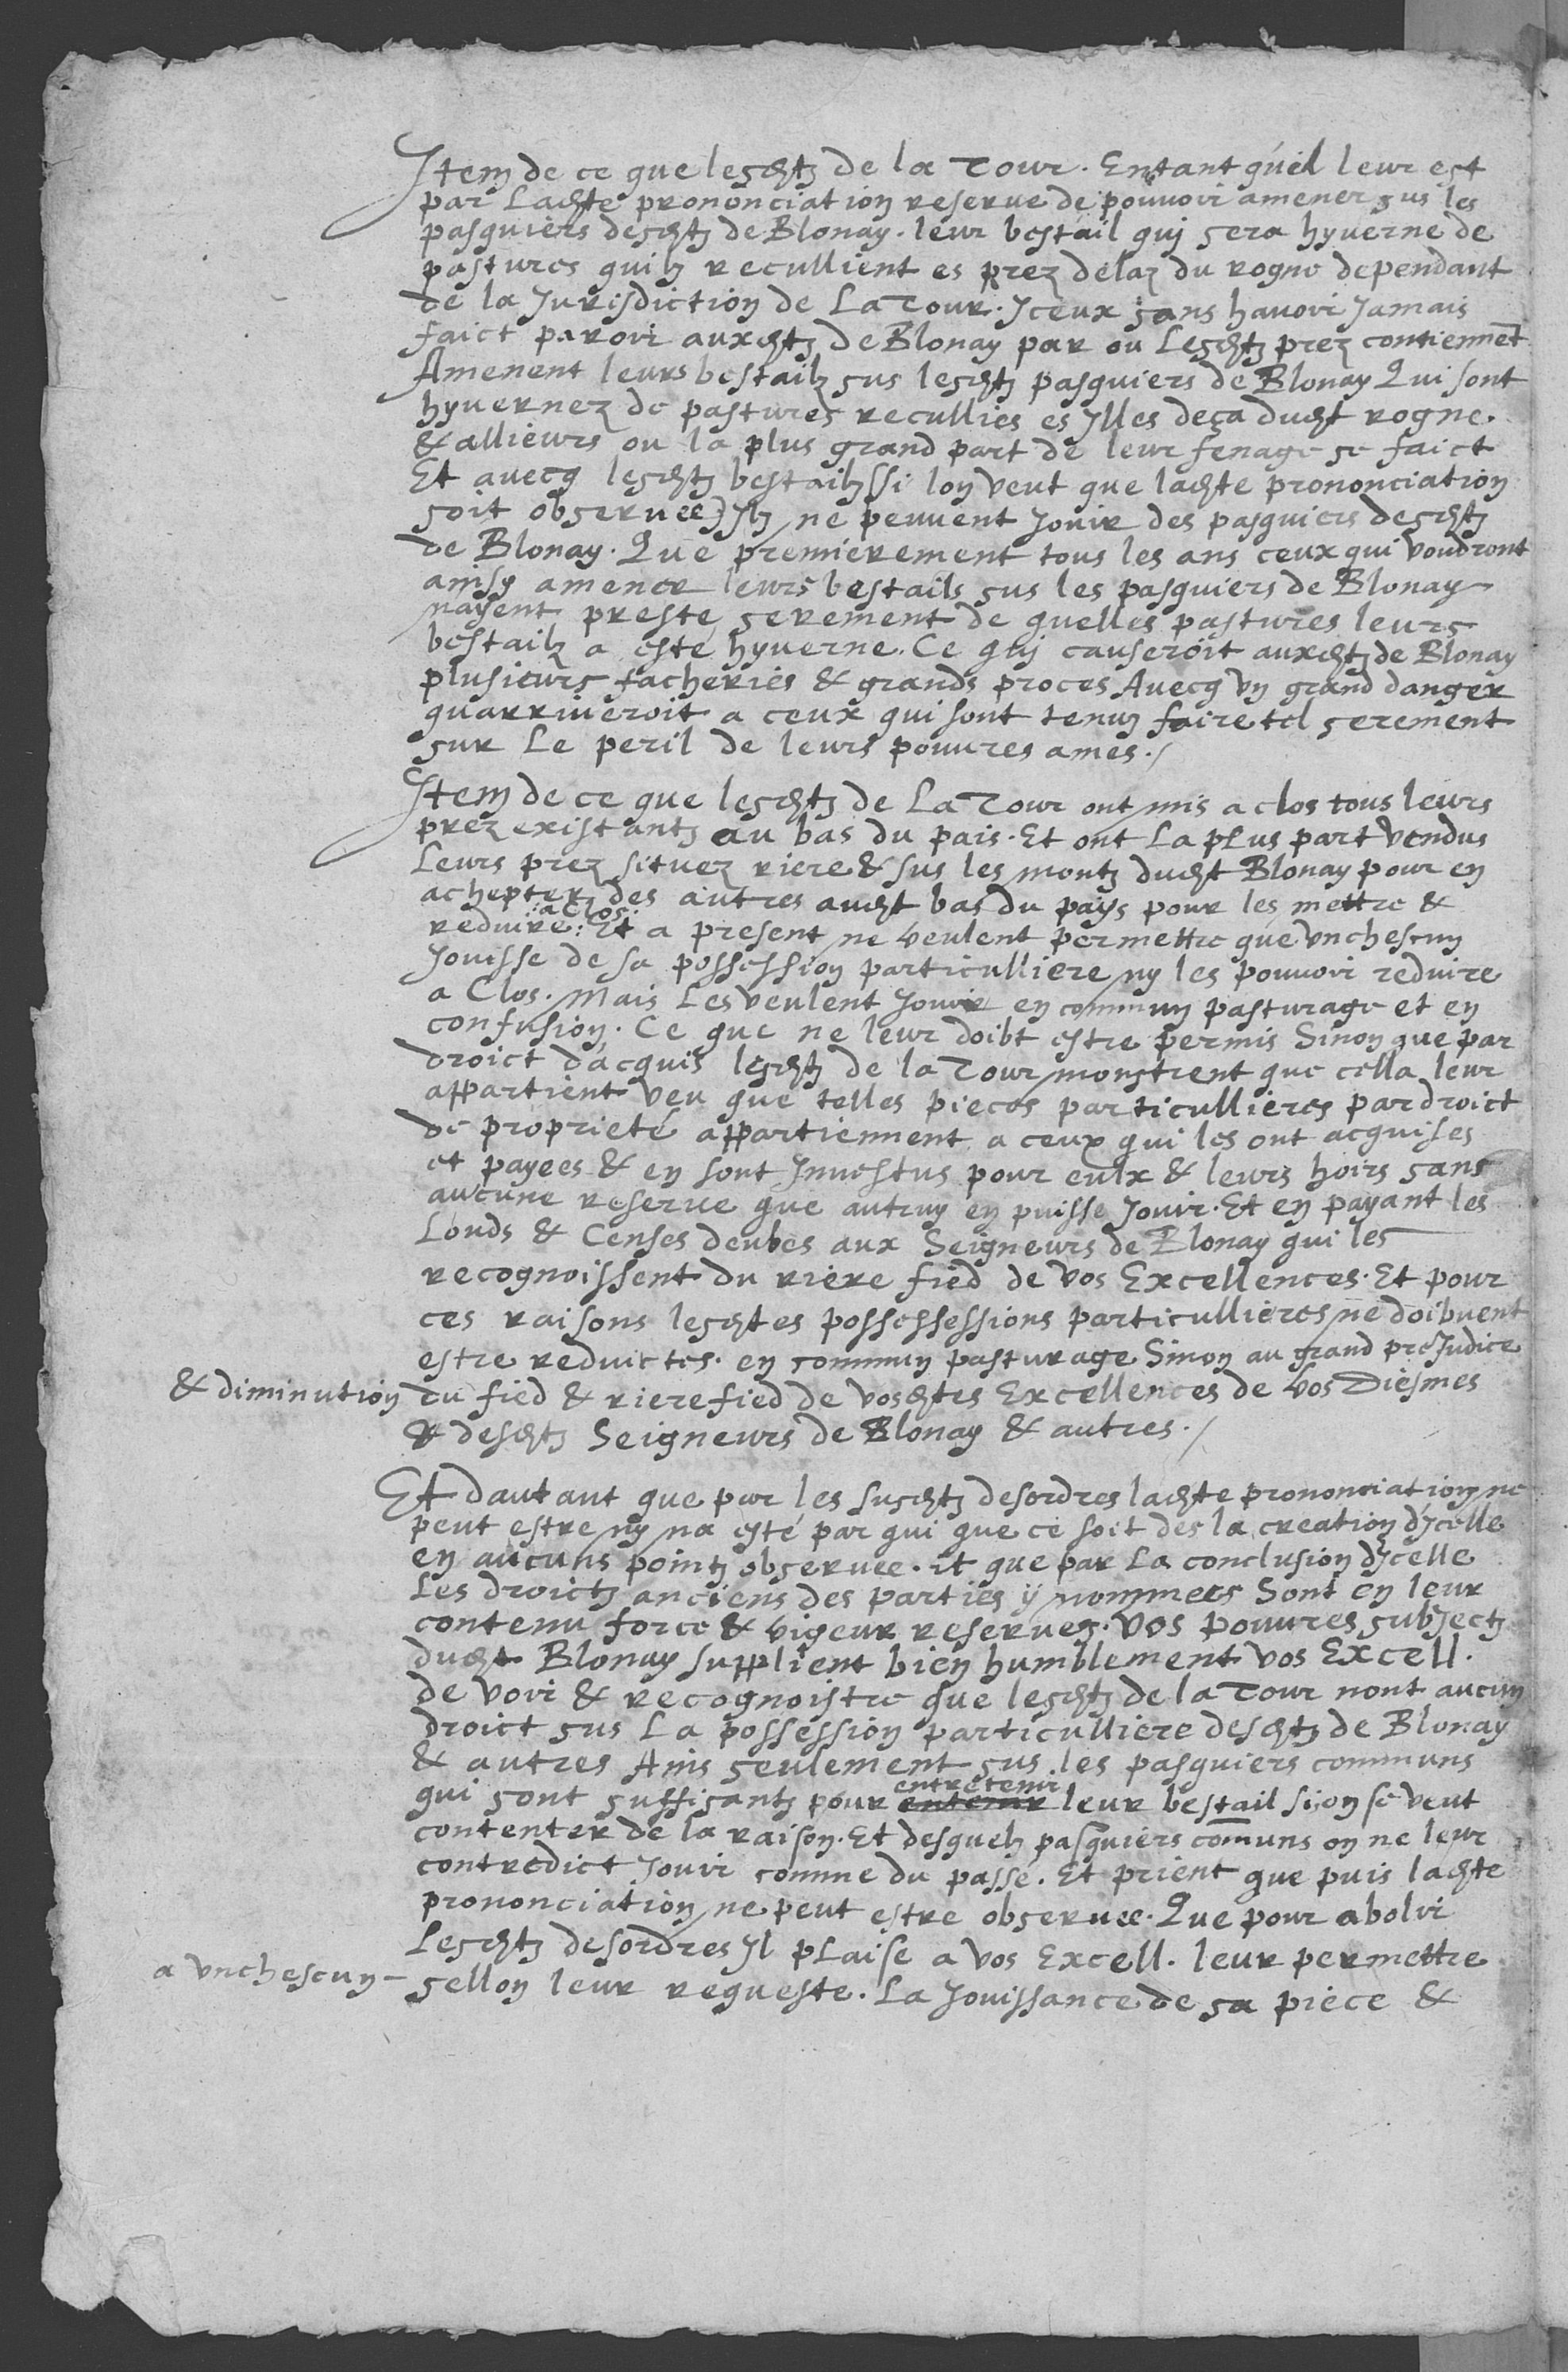 Item de ce que lesdtz de la Tour. Entant qu'il leur est
par Ladte prononciation reserue de pouuoir amener sus les
pasquiers desdtz de Blonay. leur bestail quj sera hyuerne de
pastures quilz recullient es prez delaz du rogne dependant
de la Jurisdiction de La Tour. Jceux sans hauoir Jamais
faict paroir auxdtz de Blonay par ou Lesdtz prez contiennent
Amenent leurs bestailz sus lesdtz pasquiers de Blonay Qui sont
hyuernez de pastures recullies es Jlles deça dudt rogne.
& allieurs ou la plus grand part de leur fenage se faict
Et auecq lesdtz bestailz (si lon veut que ladte prononciation
soit obseruee) Jlz ne peuuent Jouir des pasquiers desdtz
de Blonay. Que premierement tous les ans ceux qui voudront
ainsy amener leurs bestails sus les pasquiers de Blonay
nayent preste serement de quelles pastures leurs
bestailz a esté hyuerne. Ce quj causeroit auxdtz de Blonay
plusieurs facheries & grands proces Auecq vn grand danger
quarriueroit a ceux qui sont tenuz faire tel serement
sur Le peril de leurs pouures ames./
Item de ce que lesdtz de La Tour ont mis a clos tous leurs
prez existantz au bas du pais. Et ont La plus part vendus
Leurs prez situez riere & sus les montz dudt Blonay pour en
achepter des autres audt bas du pays pour les mettre &
reduire: a Clos: Et a present ne veulent permettre que vnchescun
Jouisse de sa possession particulliere ny les pouuoir reduire
a Clos. Mais Les veulent Jouir en commun pasturage et en
confusion. Ce que ne leur doibt estre permis Sinon que par
droict d'acquis lesdtz de la Tour monstrent que cella leur
appartient veu que telles pieces particullieres par droict
de proprieté appartiennent a ceux qui les ont acquises
et payees & en sont Jnuestus pour eulx & leurs hoirs sans
aucune reserue que autruy en puisse Jouir. Et en payant les
Louds & Censes deubes aux Seigneurs de Blonay qui les
recognoissent du riere fied de vos Excellences. Et pour
ces raisons lesdtes possessessions particullieres ne doibuent
estre reduictes. en commun pasturage Sinon au grand preJudice
& diminution du fied & riere fied de vosdtes Excellences de vos Diesmes
& desdtz Seigneurs de Blonay & autres./
Et dautant que par les susdtz desordres ladte prononciation ne
peut estre ny na esté par qui que ce soit des la creation dJcelle
en aucuns pointz obseruee. et que par La conclusion dJcelle
Les droictz anciens des parties ÿ nommees Sont en leur
contenu force & vigeur reseruez. vos pouures subJectz
dudt Blonay supplient bien humblement vos Excell.
de voir & recognoistre que lesdtz de la Tour nont aucun
droict sus La possession particulliere desdtz de Blonay
& autres Ains seulement sus les pasquiers communs
qui sont suffisantz pour entenir entretenir leur bestail si on se veut
contenter de la raison. Et desquelz pasquiers comuns on ne leur
contredict Jouir comme du passé. Et prient que puis ladte
prononciation ne peut estre obseruee. Que pour abolir
Lesdtz desordres Jl pLaise a vos Excell. leur permettre
a vnchescun - sellon leur requeste. La Jouissance de sa piece &